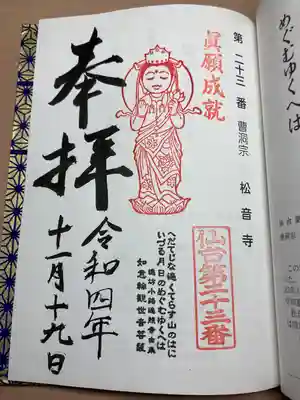 第二十三番 曹洞宗 松音寺
眞願成就
仙台第二十三番
へだてじな遍くてらす山のはに
いづる月日のめぐむゆくへは
如意輪観世音菩薩
奉拝
令和四年
十一月十九日
めぐむゆくへは